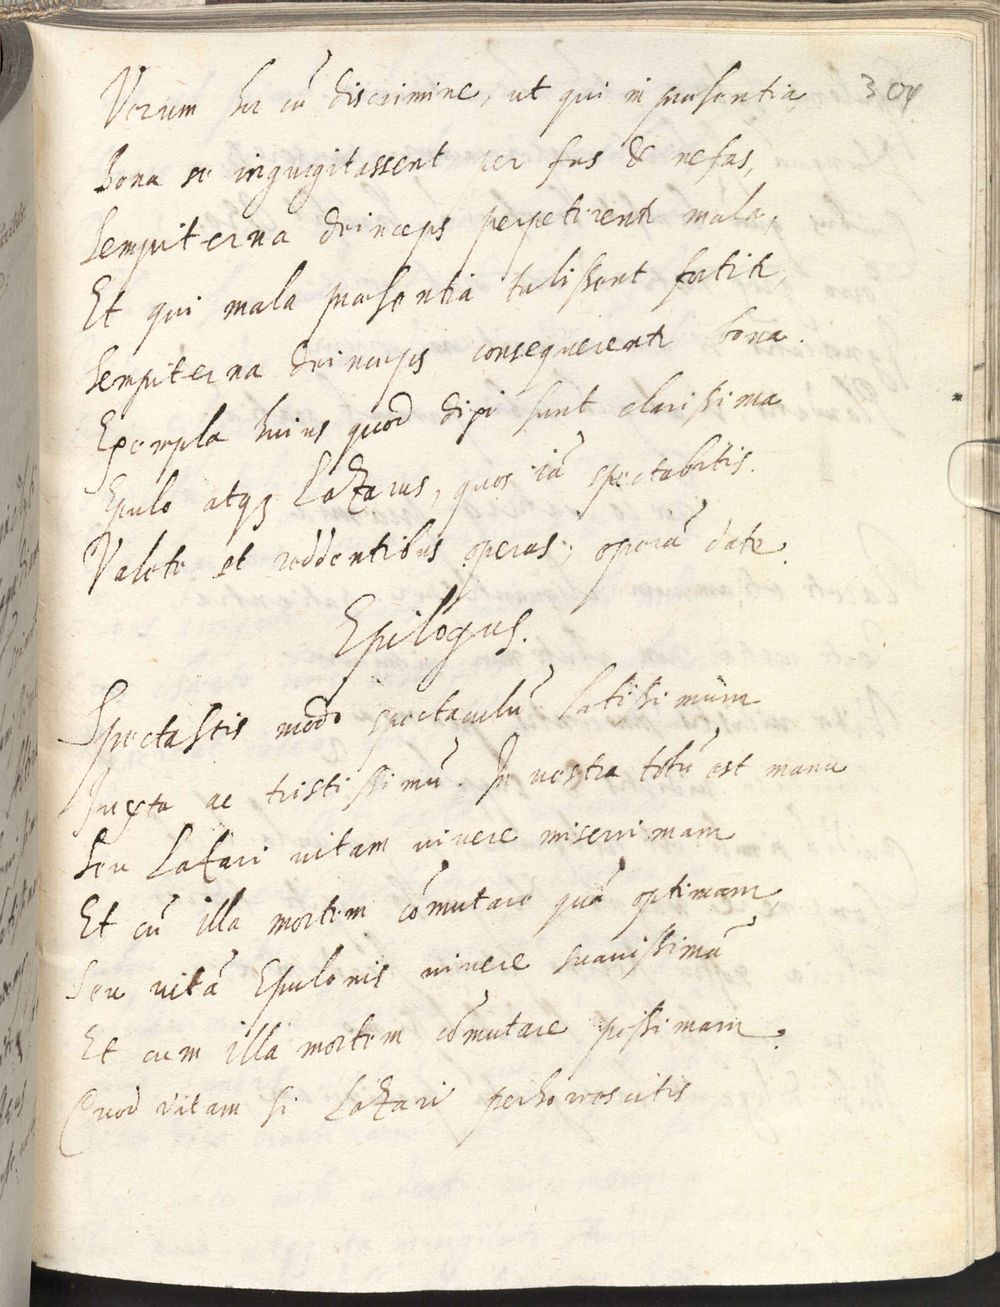 Verum hoc cũ discrimine, ut qui in præsentia
304
Bona se ingurgitassent per fas & nefas,
Sempiterna deinceps perpetirent mala,
Et qui mala præsentia tulissent fortit̃
Sempiterna deinceps consequerent bona.
Exempla huius quod dixi sunt clarissima
Epulo atqꝫ Lazarus, quos iã spectabitis.
Valete et reddentibus operas, operã date.
Epilogus.
Spectastis modo spectaculũ lætissimum
Iuxta ac tristissimũ. In vestra totũ est manu
Seu Lazari vitam vivere miserrimam
Et cũ illa mortem cõmutare quã optimam,
Seu vitã Epulonis vivere suavissimã
Et cum illa mortem cõmutare pessimam.
Quod vitam si Lazari perhorrescitis